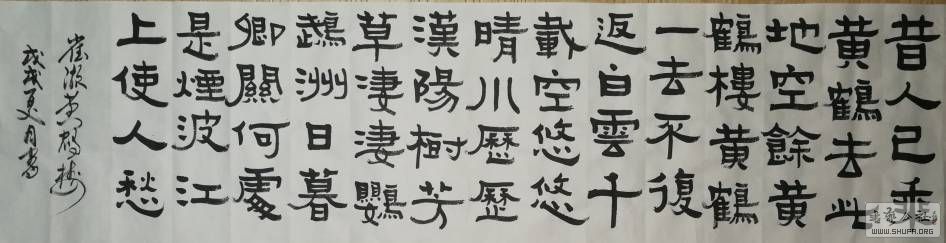 昔人已乘
黄鶴去此
地空餘黄
鶴樓黄鶴
一去不復
返白雲千
載空悠悠
晴川歷歷
漢陽樹芳
草淒淒鸚
鵡洲日暮
鄉關何處
是煙波江
上使人愁
崔颢黄鹤楼
戊戌夏月書
WWW.SHUFA.ORG